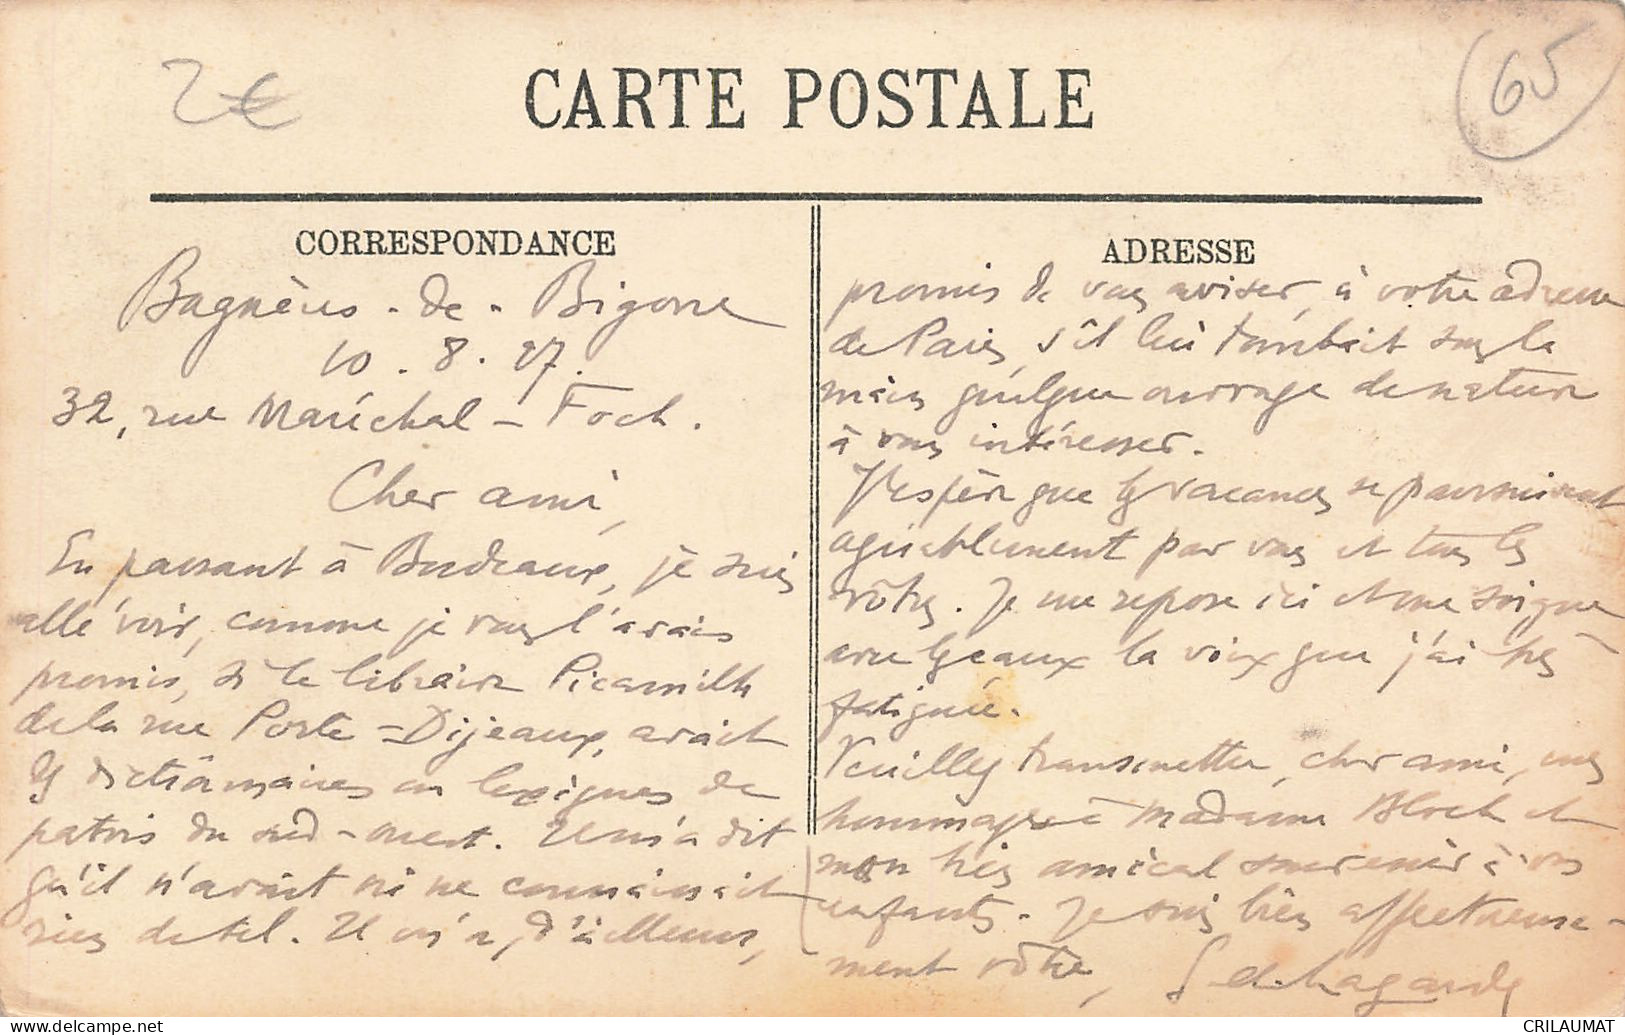 2€
CARTE POSTALE
65
CORRESPONDANCE
Bagnères-de-Bigorre
10.8.27.
32, rue Maréchal-Foch.
Cher ami,
En passant à Bordeaux, je suis
allé voir, comme je vous l'avais
promis, si le libraire Picamilh
de la rue Porte-Dijeaux, avait
des dictionnaires ou lexiques de
patois du sud-ouest. Il m'a dit
qu'il n'avait ni ne connaissait
rien de tel. Il m'a, d'ailleurs,
ADRESSE
promis de vous aviser, à votre adresse
de Paris, s'il lui tombait sous la
main quelque ouvrage de nature
à vous intéresser.
J'espère que les vacances se poursuivent
agréablement par vous et tous les
vôtres. Je me repose ici et me soigne
avec les eaux la voix que j'ai très
fatiguée.
Veuillez transmettre, cher ami, mes
hommages à Madame Bloch et
mon très amical souvenir à vos
enfants. Je suis bien affectueuse-
ment vôtre,
G. de Lagarde
CRILAUMAT